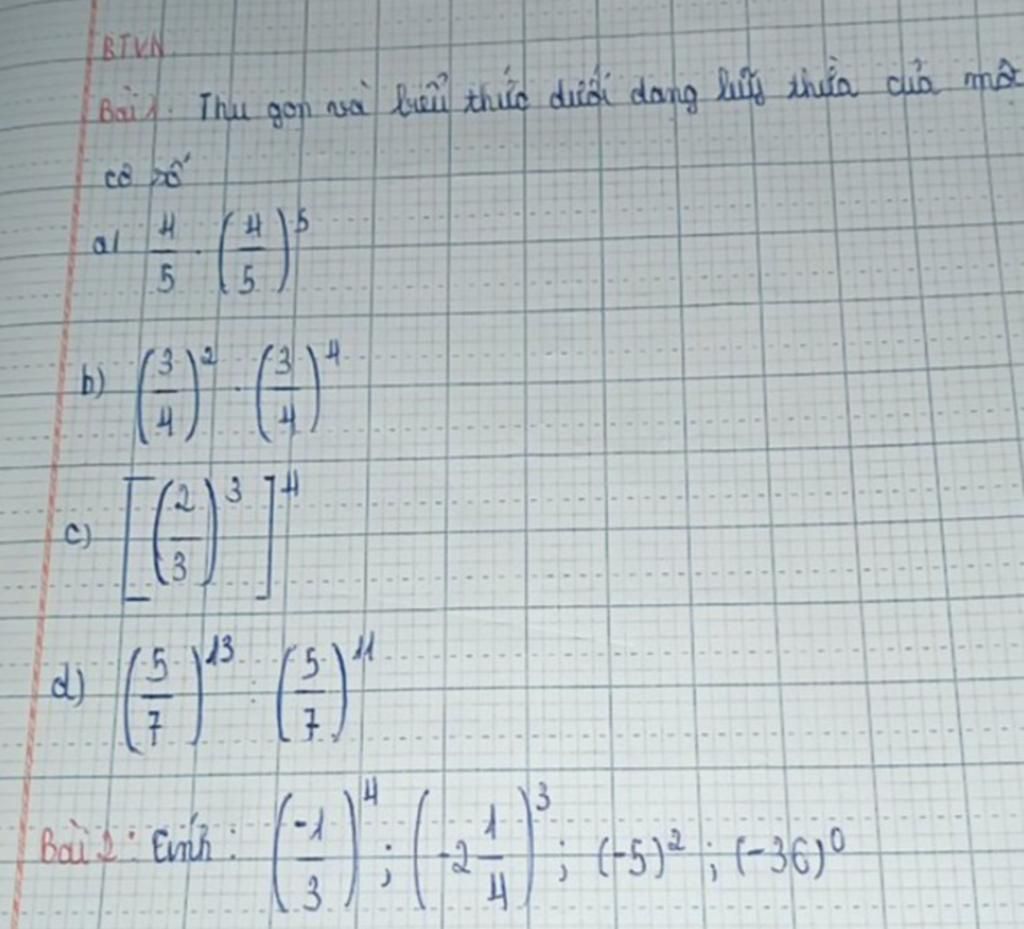 BTVN
Bài 1. Thu gọn và biểu thức dưới dạng luỹ thừa của một
cơ số
a) 4/5 . (4/5)^5
b) (3/4)^2 . (3/4)^4
c) [(2/3)^3]^4
d) (5/7)^13 : (5/7)^11
Bài 2: Tính: (-1/3)^4; (-2 1/4)^3; (-5)^2; (-36)^0